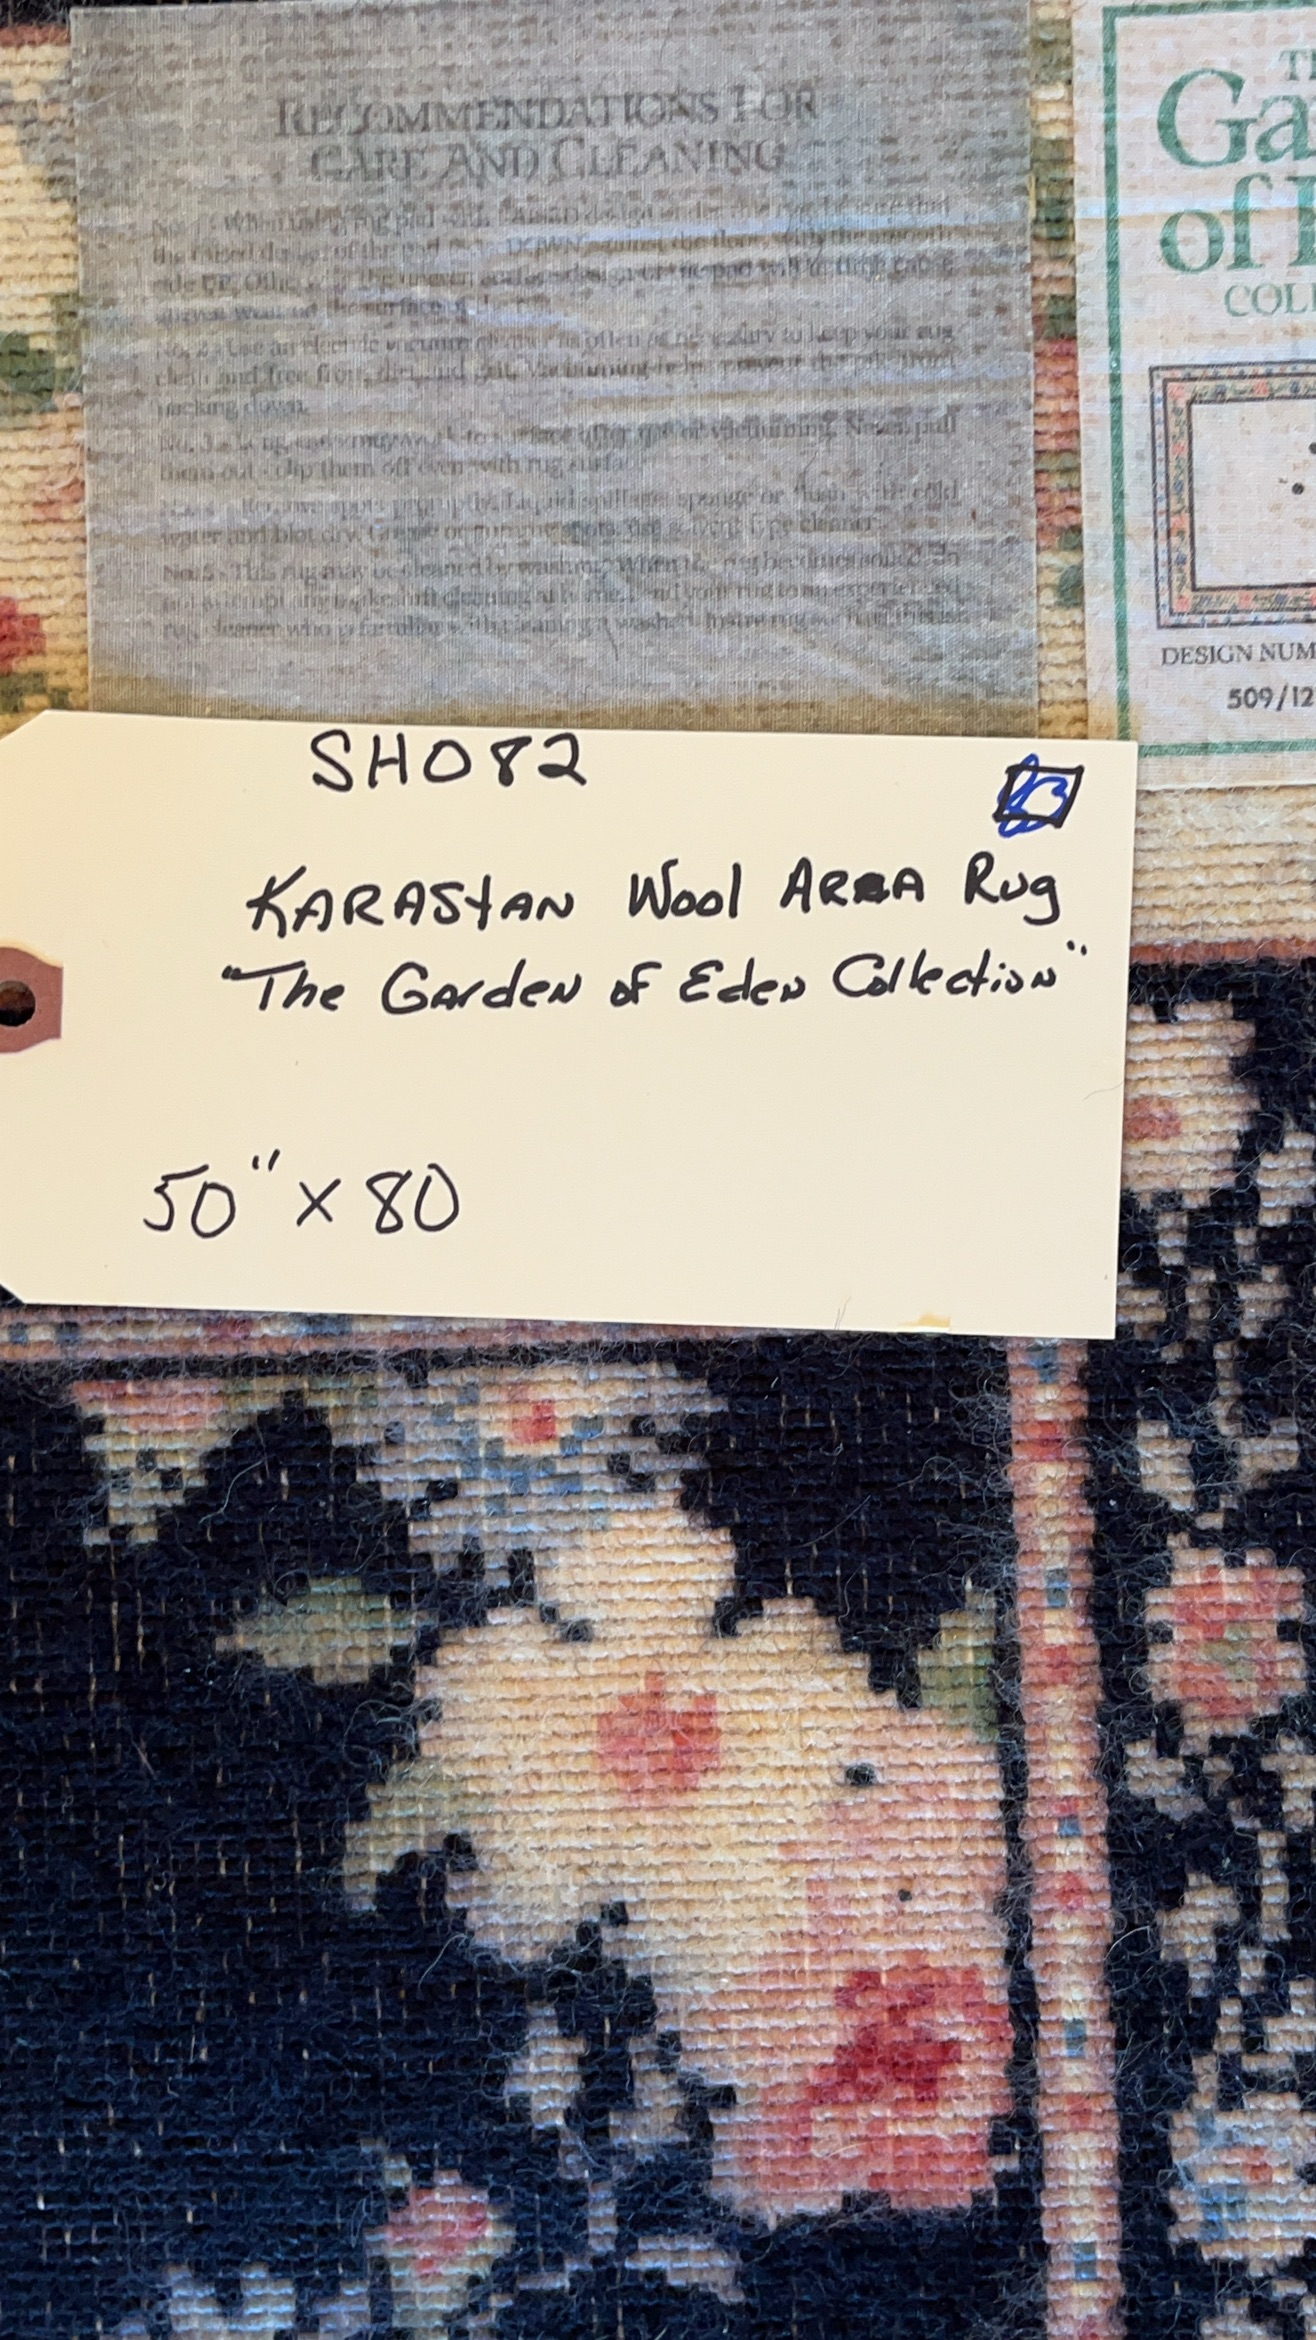 RECOMMENDATIONS FOR
CARE AND CLEANING
When using rug pad with
the raised design of the pad DOWN against the floor, with the smooth
side UP. the uneven surface design of the pad will in time cause
wear on the surface of
Use an electric vacuum cleaner as often as necessary to keep your rug
clean and free from dirt and grit. Vacuuming helps prevent the pile from
packing down.
No. 3 - to surface after use or vacuuming. Never pull
them out - clip them off even with rug surface.
Remove spots promptly. Liquid spillage, sponge or flush with cold
water and blot dry. Grease or spots, use a type cleaner.
No. 5 - This rug may be cleaned by washing. When the rug becomes soiled, do
not attempt any makeshift cleaning at home. Send your rug to an experienced
rug cleaner who is familiar with cleaning
Ga
of
COL
DESIGN NUM
509/12
SH082
KARAStAN Wool AREA Rug
"The Garden of Eden Collection"
50" x 80